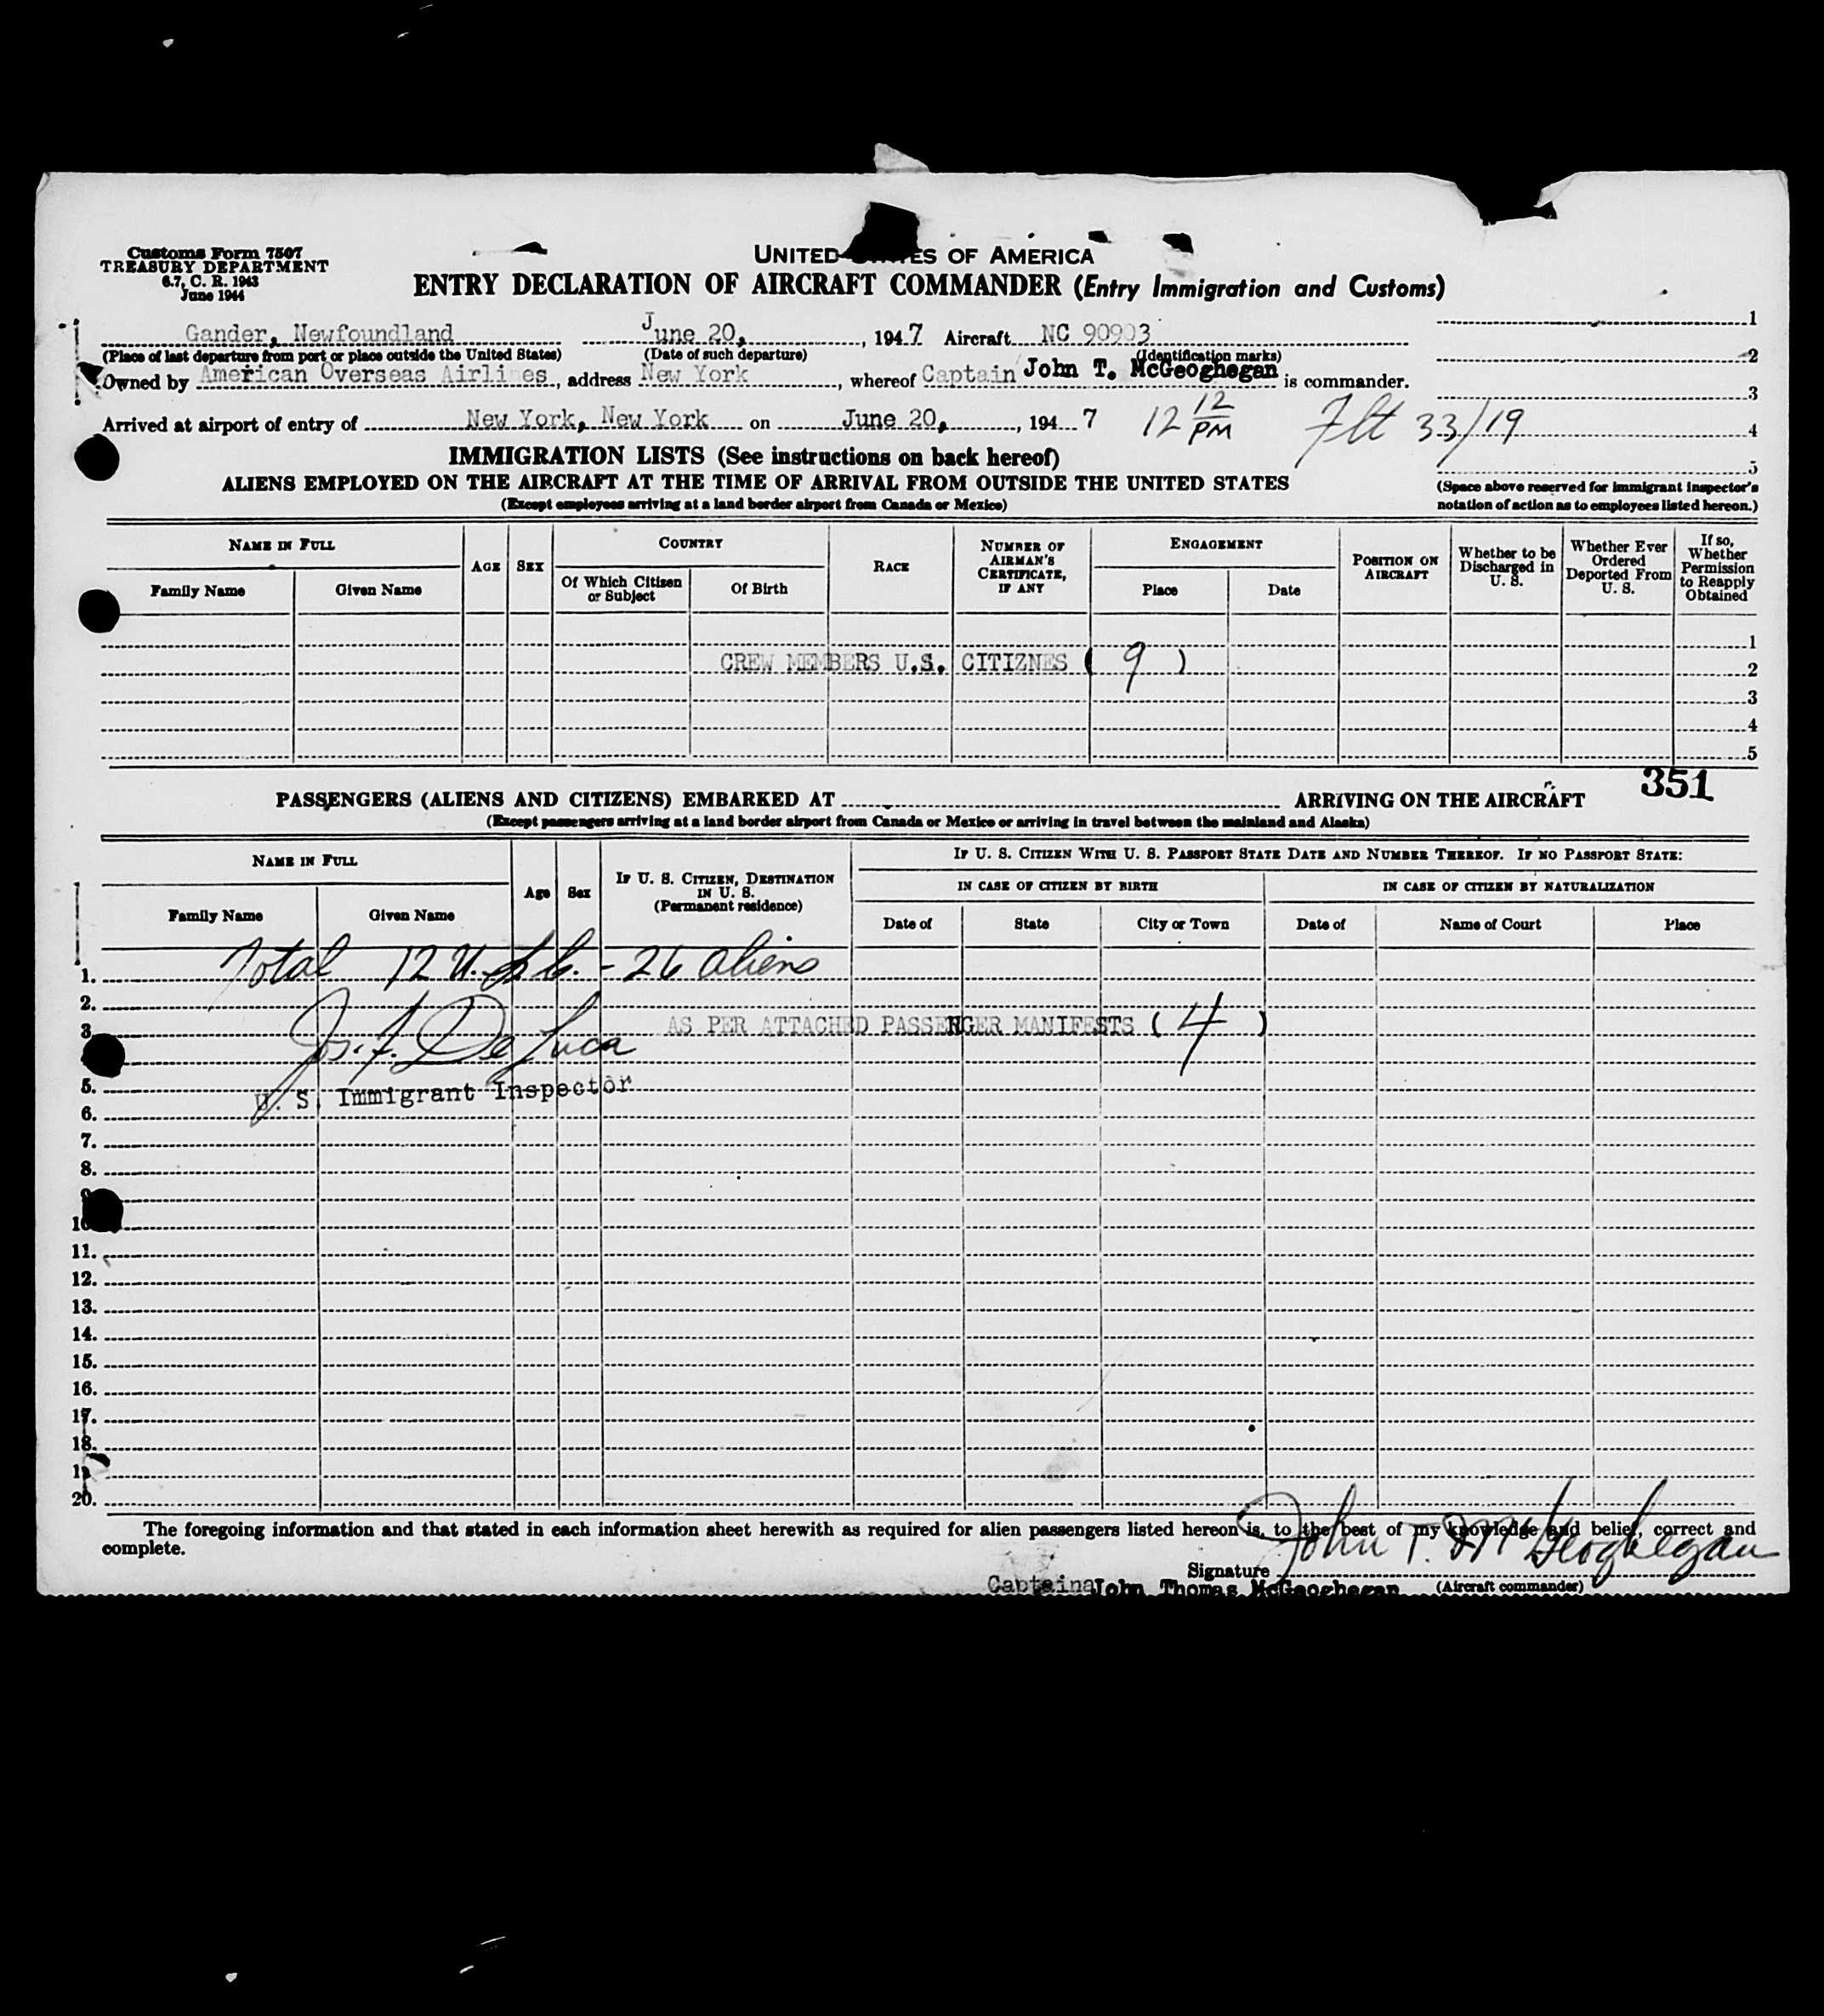 Customs Form 7507
TREASURY DEPARTMENT
6.7, C. R. 1943
June 1944
UNITED STATES OF AMERICA
ENTRY DECLARATION OF AIRCRAFT COMMANDER (Entry Immigration and Customs)
Gander, Newfoundland June 20, , 1947 Aircraft NC 90903 1
(Place of last departure from port or place outside the United States) (Date of such departure) (Identification marks) 2
Owned by American Overseas Airlines, address New York, whereof Captain John T. McGeoghegan is commander.
3
Arrived at airport of entry of New York, New York on June 20, , 194 7 12 12 PM Flt 33/19 4
IMMIGRATION LISTS (See instructions on back hereof) 5
ALIENS EMPLOYED ON THE AIRCRAFT AT THE TIME OF ARRIVAL FROM OUTSIDE THE UNITED STATES
(Except employees arriving at a land border airport from Canada or Mexico)
(Space above reserved for immigrant inspector's
notation of action as to employees listed hereon.)
NAME IN FULL AGE SEX COUNTRY RACE NUMBER OF AIRMAN'S CERTIFICATE, IF ANY ENGAGEMENT POSITION ON AIRCRAFT Whether to be Discharged in U. S. Whether Ever Ordered Deported From U. S. If so, Whether Permission to Reapply Obtained
Family Name Given Name Of Which Citizen or Subject Of Birth Place Date
1
CREW MEMBERS U.S. CITIZNES ( 9 ) 2
3
4
5
351
PASSENGERS (ALIENS AND CITIZENS) EMBARKED AT ARRIVING ON THE AIRCRAFT
(Except passengers arriving at a land border airport from Canada or Mexico or arriving in travel between the mainland and Alaska)
NAME IN FULL Age Sex IF U. S. CITIZEN, DESTINATION IN U. S. (Permanent residence) IF U. S. CITIZEN WITH U. S. PASSPORT STATE DATE AND NUMBER THEREOF. IF NO PASSPORT STATE:
IN CASE OF CITIZEN BY BIRTH IN CASE OF CITIZEN BY NATURALIZATION
Family Name Given Name Date of State City or Town Date of Name of Court Place
1. Total 12 U.S.C. - 26 aliens
2.
3. Jos. F. DeLuca AS PER ATTACHED PASSENGER MANIFESTS ( 4 )
5. U. S. Immigrant Inspector
6.
7.
8.
9.
10.
11.
12.
13.
14.
15.
16.
17.
18.
19.
20.
The foregoing information and that stated in each information sheet herewith as required for alien passengers listed hereon is, to the best of my knowledge and belief, correct and
complete.
Signature John T. McGeoghegan
Captain John Thomas McGeoghegan (Aircraft commander)